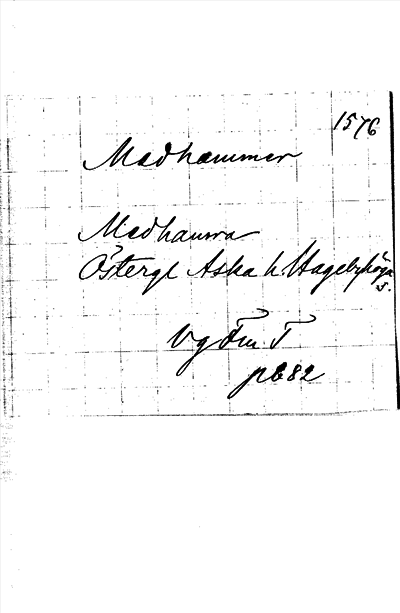 1576
Medhammer
Medhamra
Östergl Aska h. Hagebyhöga
s.
Vg Fm T
p 682